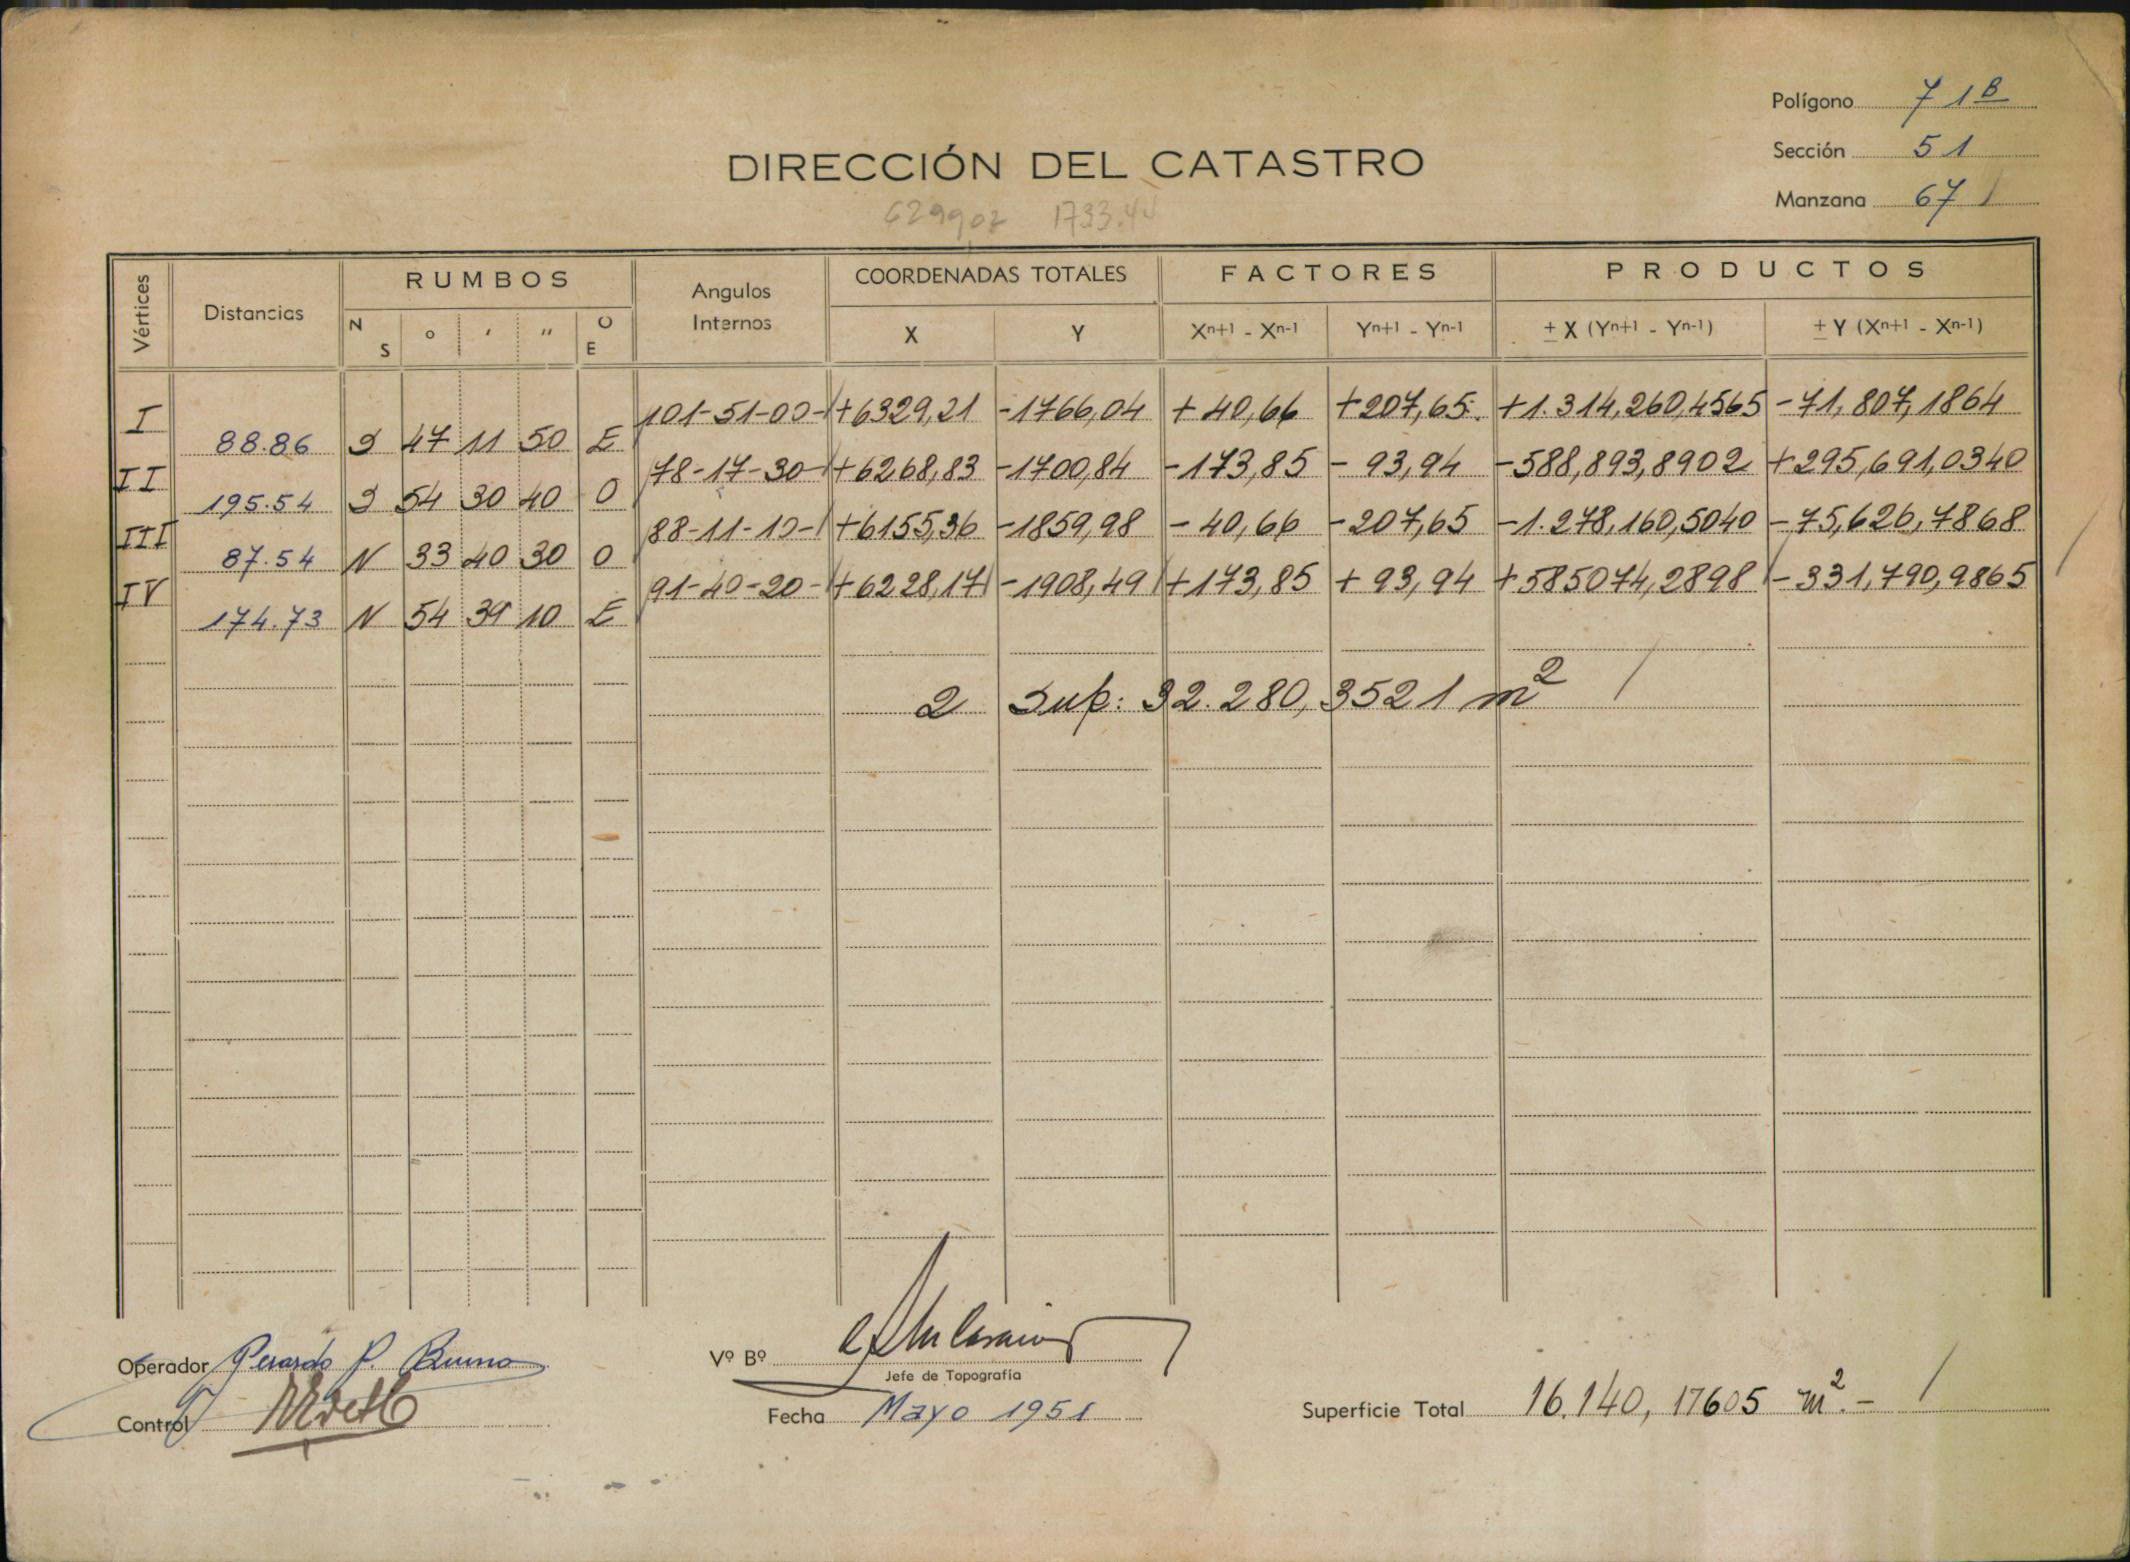 Polígono 71B
Sección 51
Manzana 67
DIRECCIÓN DEL CATASTRO
629902 1733.44
Vértices Distancias RUMBOS Angulos Internos COORDENADAS TOTALES FACTORES PRODUCTOS
N S ° ' " O E X Y Xn+1 - Xn-1 Yn+1 - Yn-1 ± X (Yn+1 - Yn-1) ± Y (Xn+1 - Xn-1)
I 101-51-00- +6329,21 -1766,04 +40,66 +207,65 +1.314,260,4565 -71,807,1864
88.86 S 47 11 50 E
II 78-17-30- +6268,83 -1700,84 -173,85 -93,94 -588,893,8902 +295,691,0340
195.54 S 54 30 40 O
III 88-11-10- +6155,36 -1859,98 -40,66 -207,65 -1.278,160,5040 -75,626,7868
87.54 N 33 40 30 O
IV 91-40-20- +6228,17 -1908,49 +173,85 +93,94 +585074,2898 -331,790,9865
174.73 N 54 39 10 E
2 Sup: 32.280,3521 m2
Operador Gerardo P. Bueno
Vº Bº
Jefe de Topografía
Control
Fecha Mayo 1951
Superficie Total 16.140,17605 m2.-